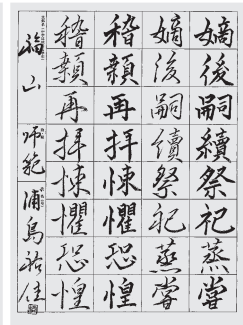 嫡後嗣續祭祀蒸嘗
嫡後嗣續祭祀蒸嘗
稽顙再拜悚懼恐惶
稽顙再拜悚懼恐惶
福山 師範 浦島